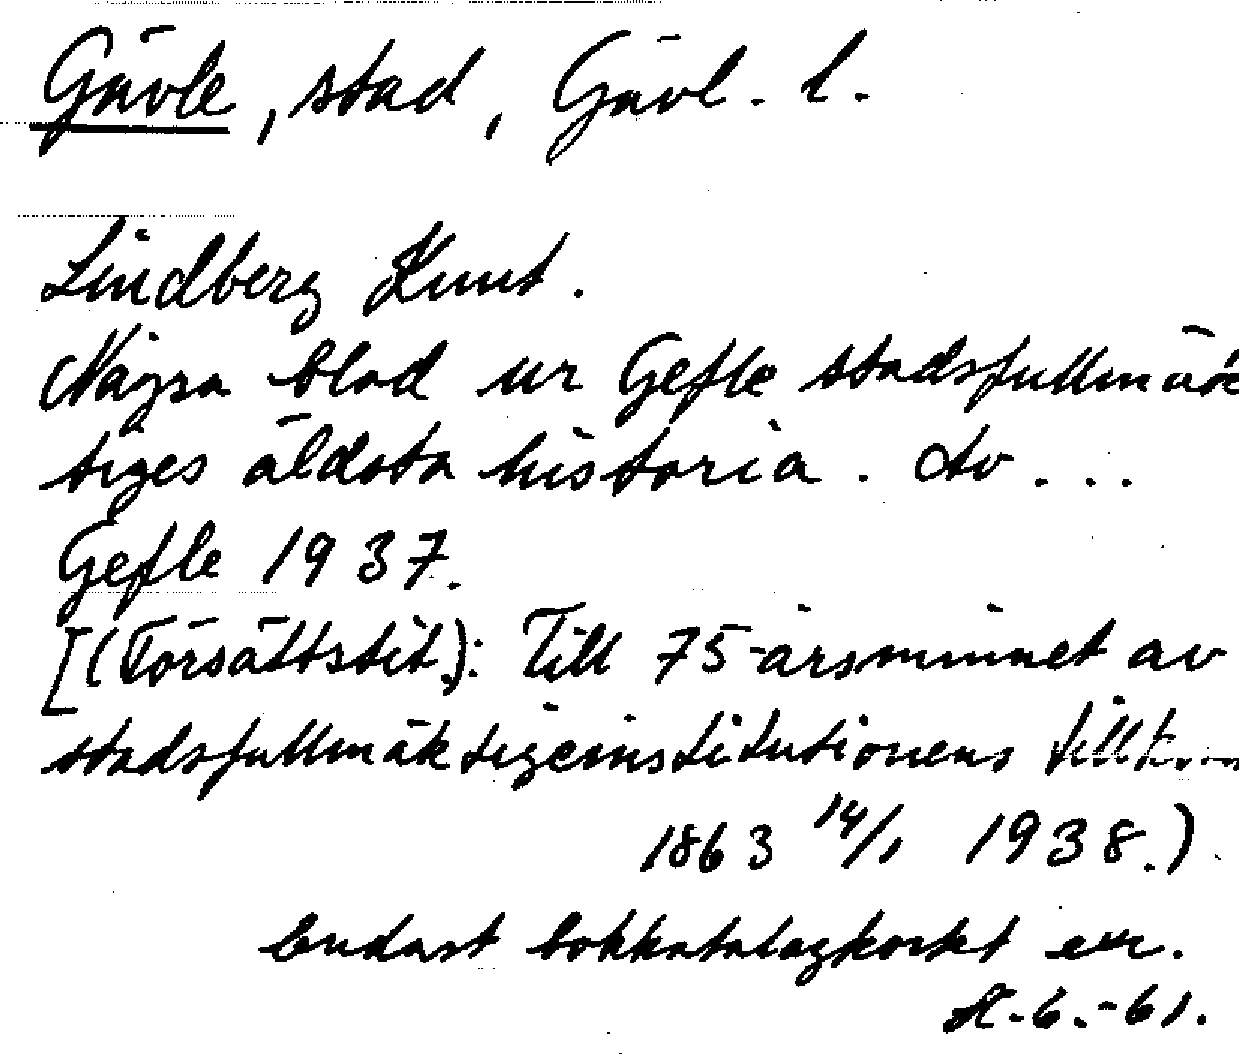 Gävle, stad, Gävl. l.
Lindberg Knut.
Några blad ur Gefle stadsfullmäk
tiges äldsta historia. Av ...
Gefle 1937.
[(Försättstit.): Till 75-årsminnet av
stadsfullmäktigeinstitutionens tillk...
1863 14/1 1938.)
Endast bokkatalogkortet exc.
6.-61.